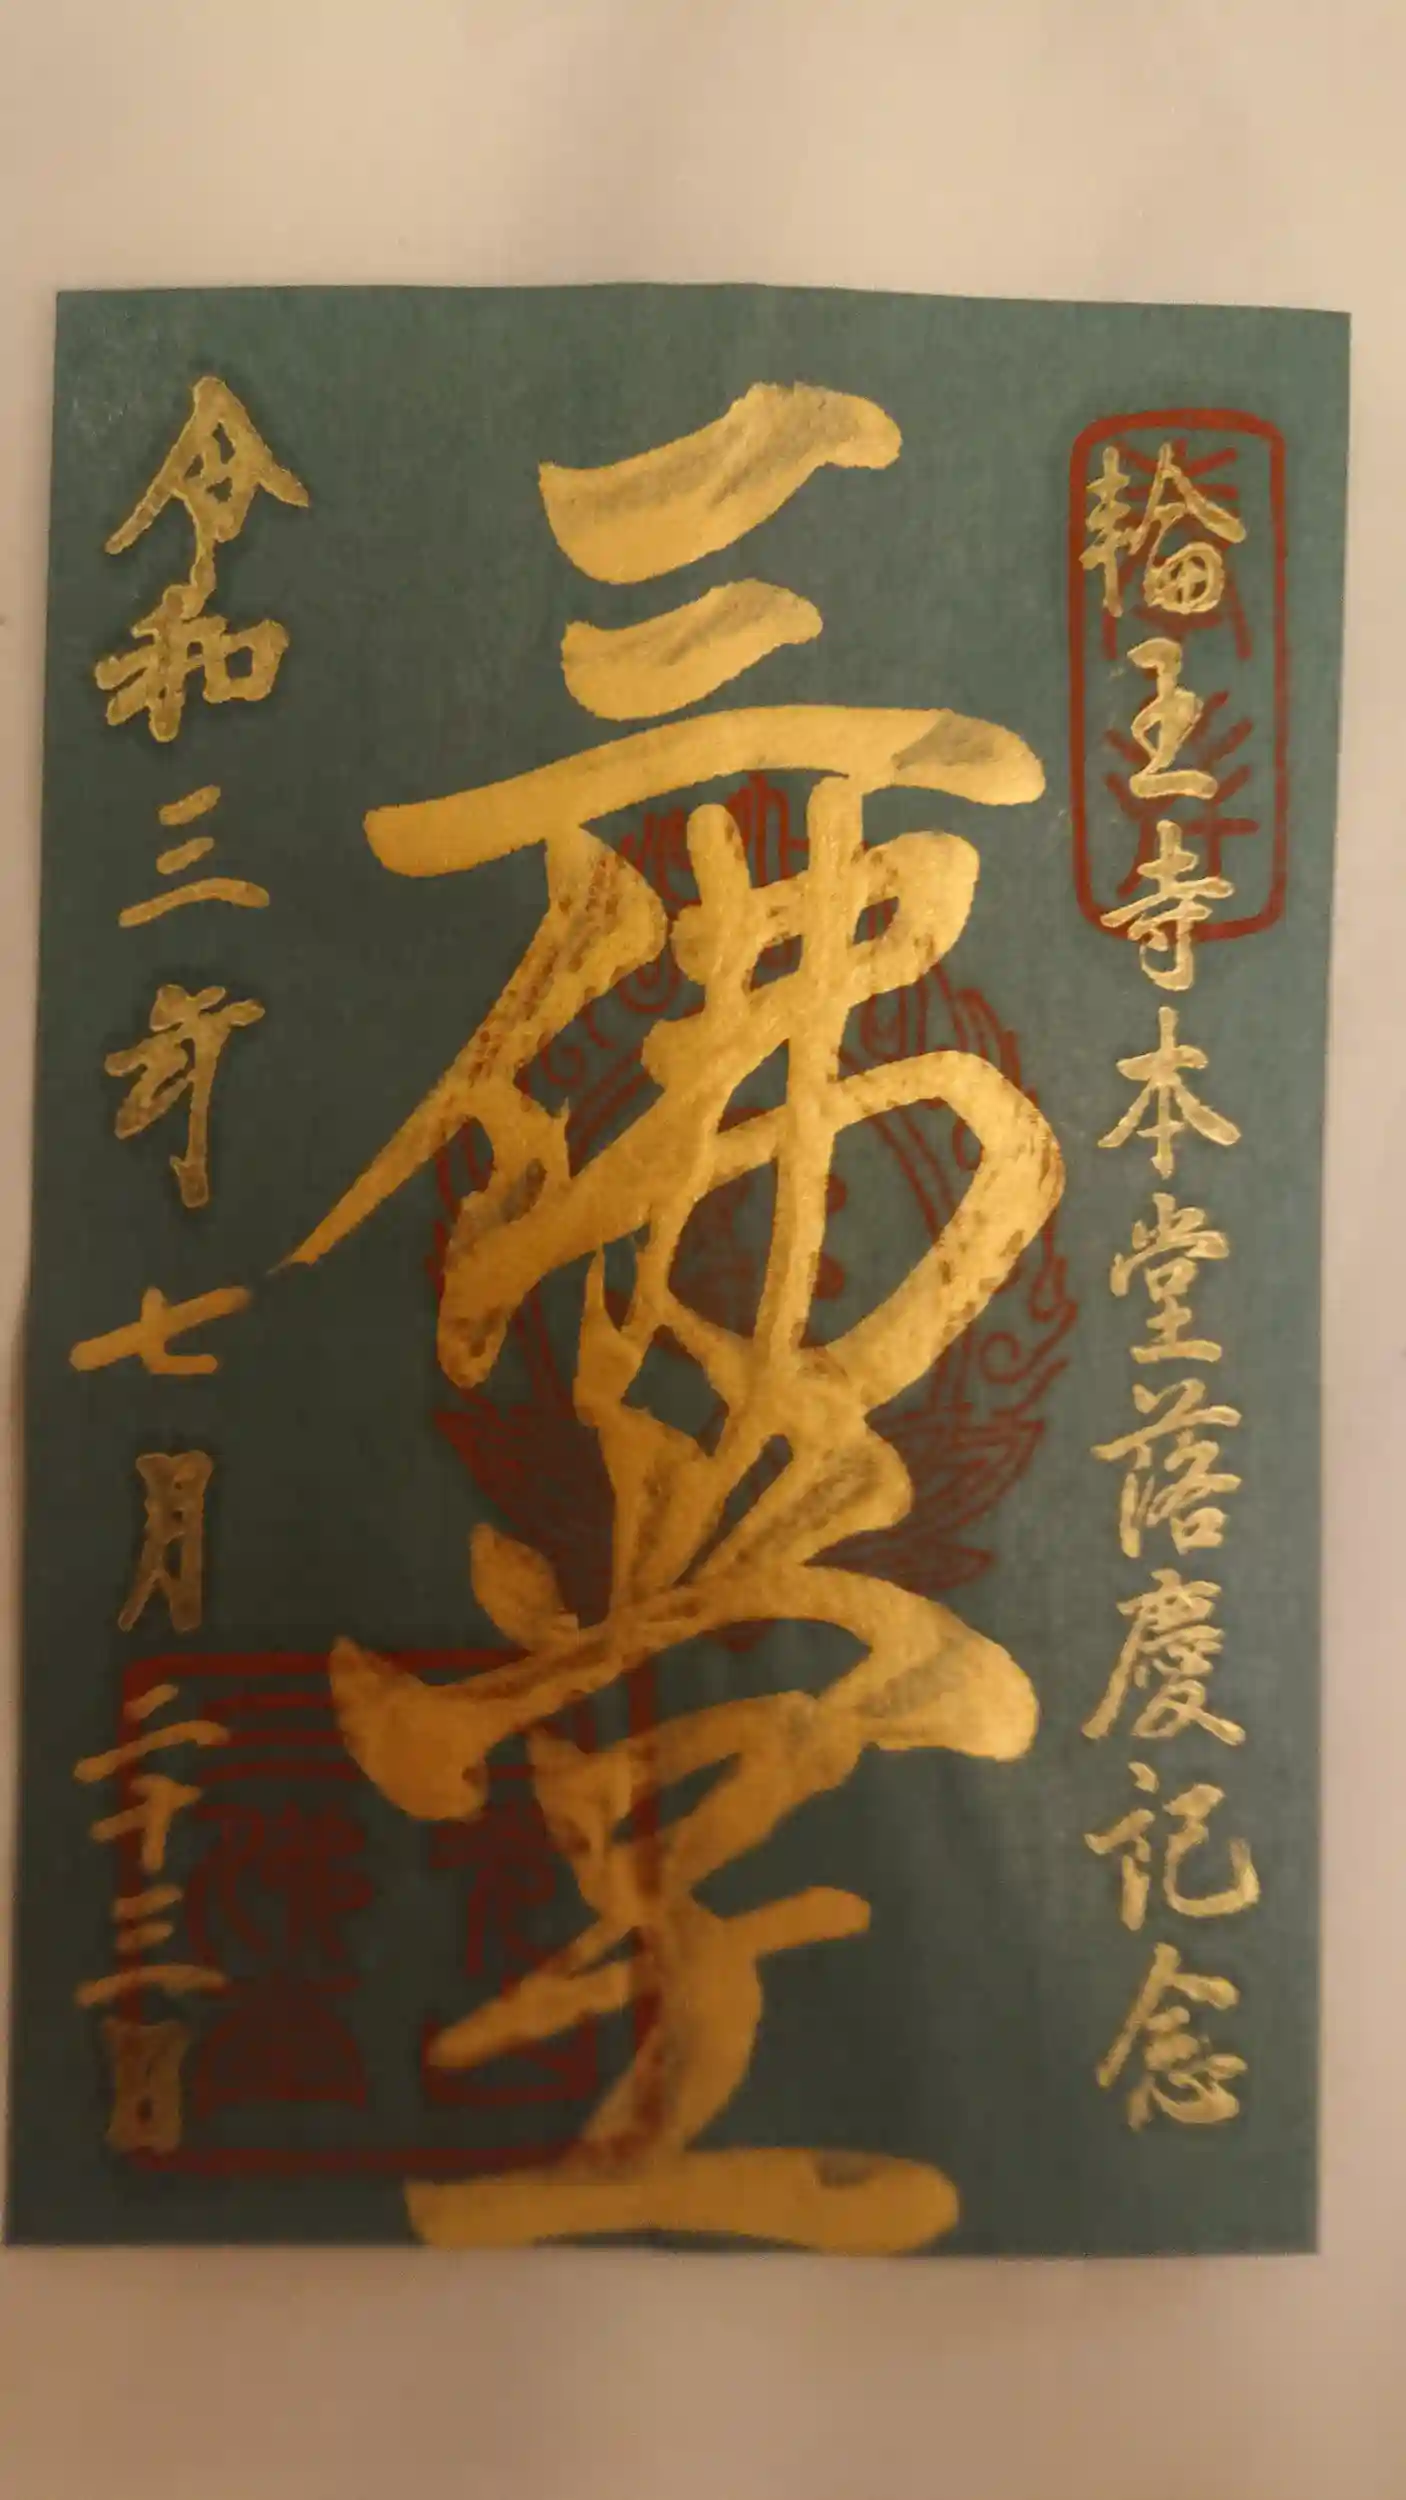 輪王寺本堂落慶記念
奉拝
三佛堂
令和三年七月二十三日